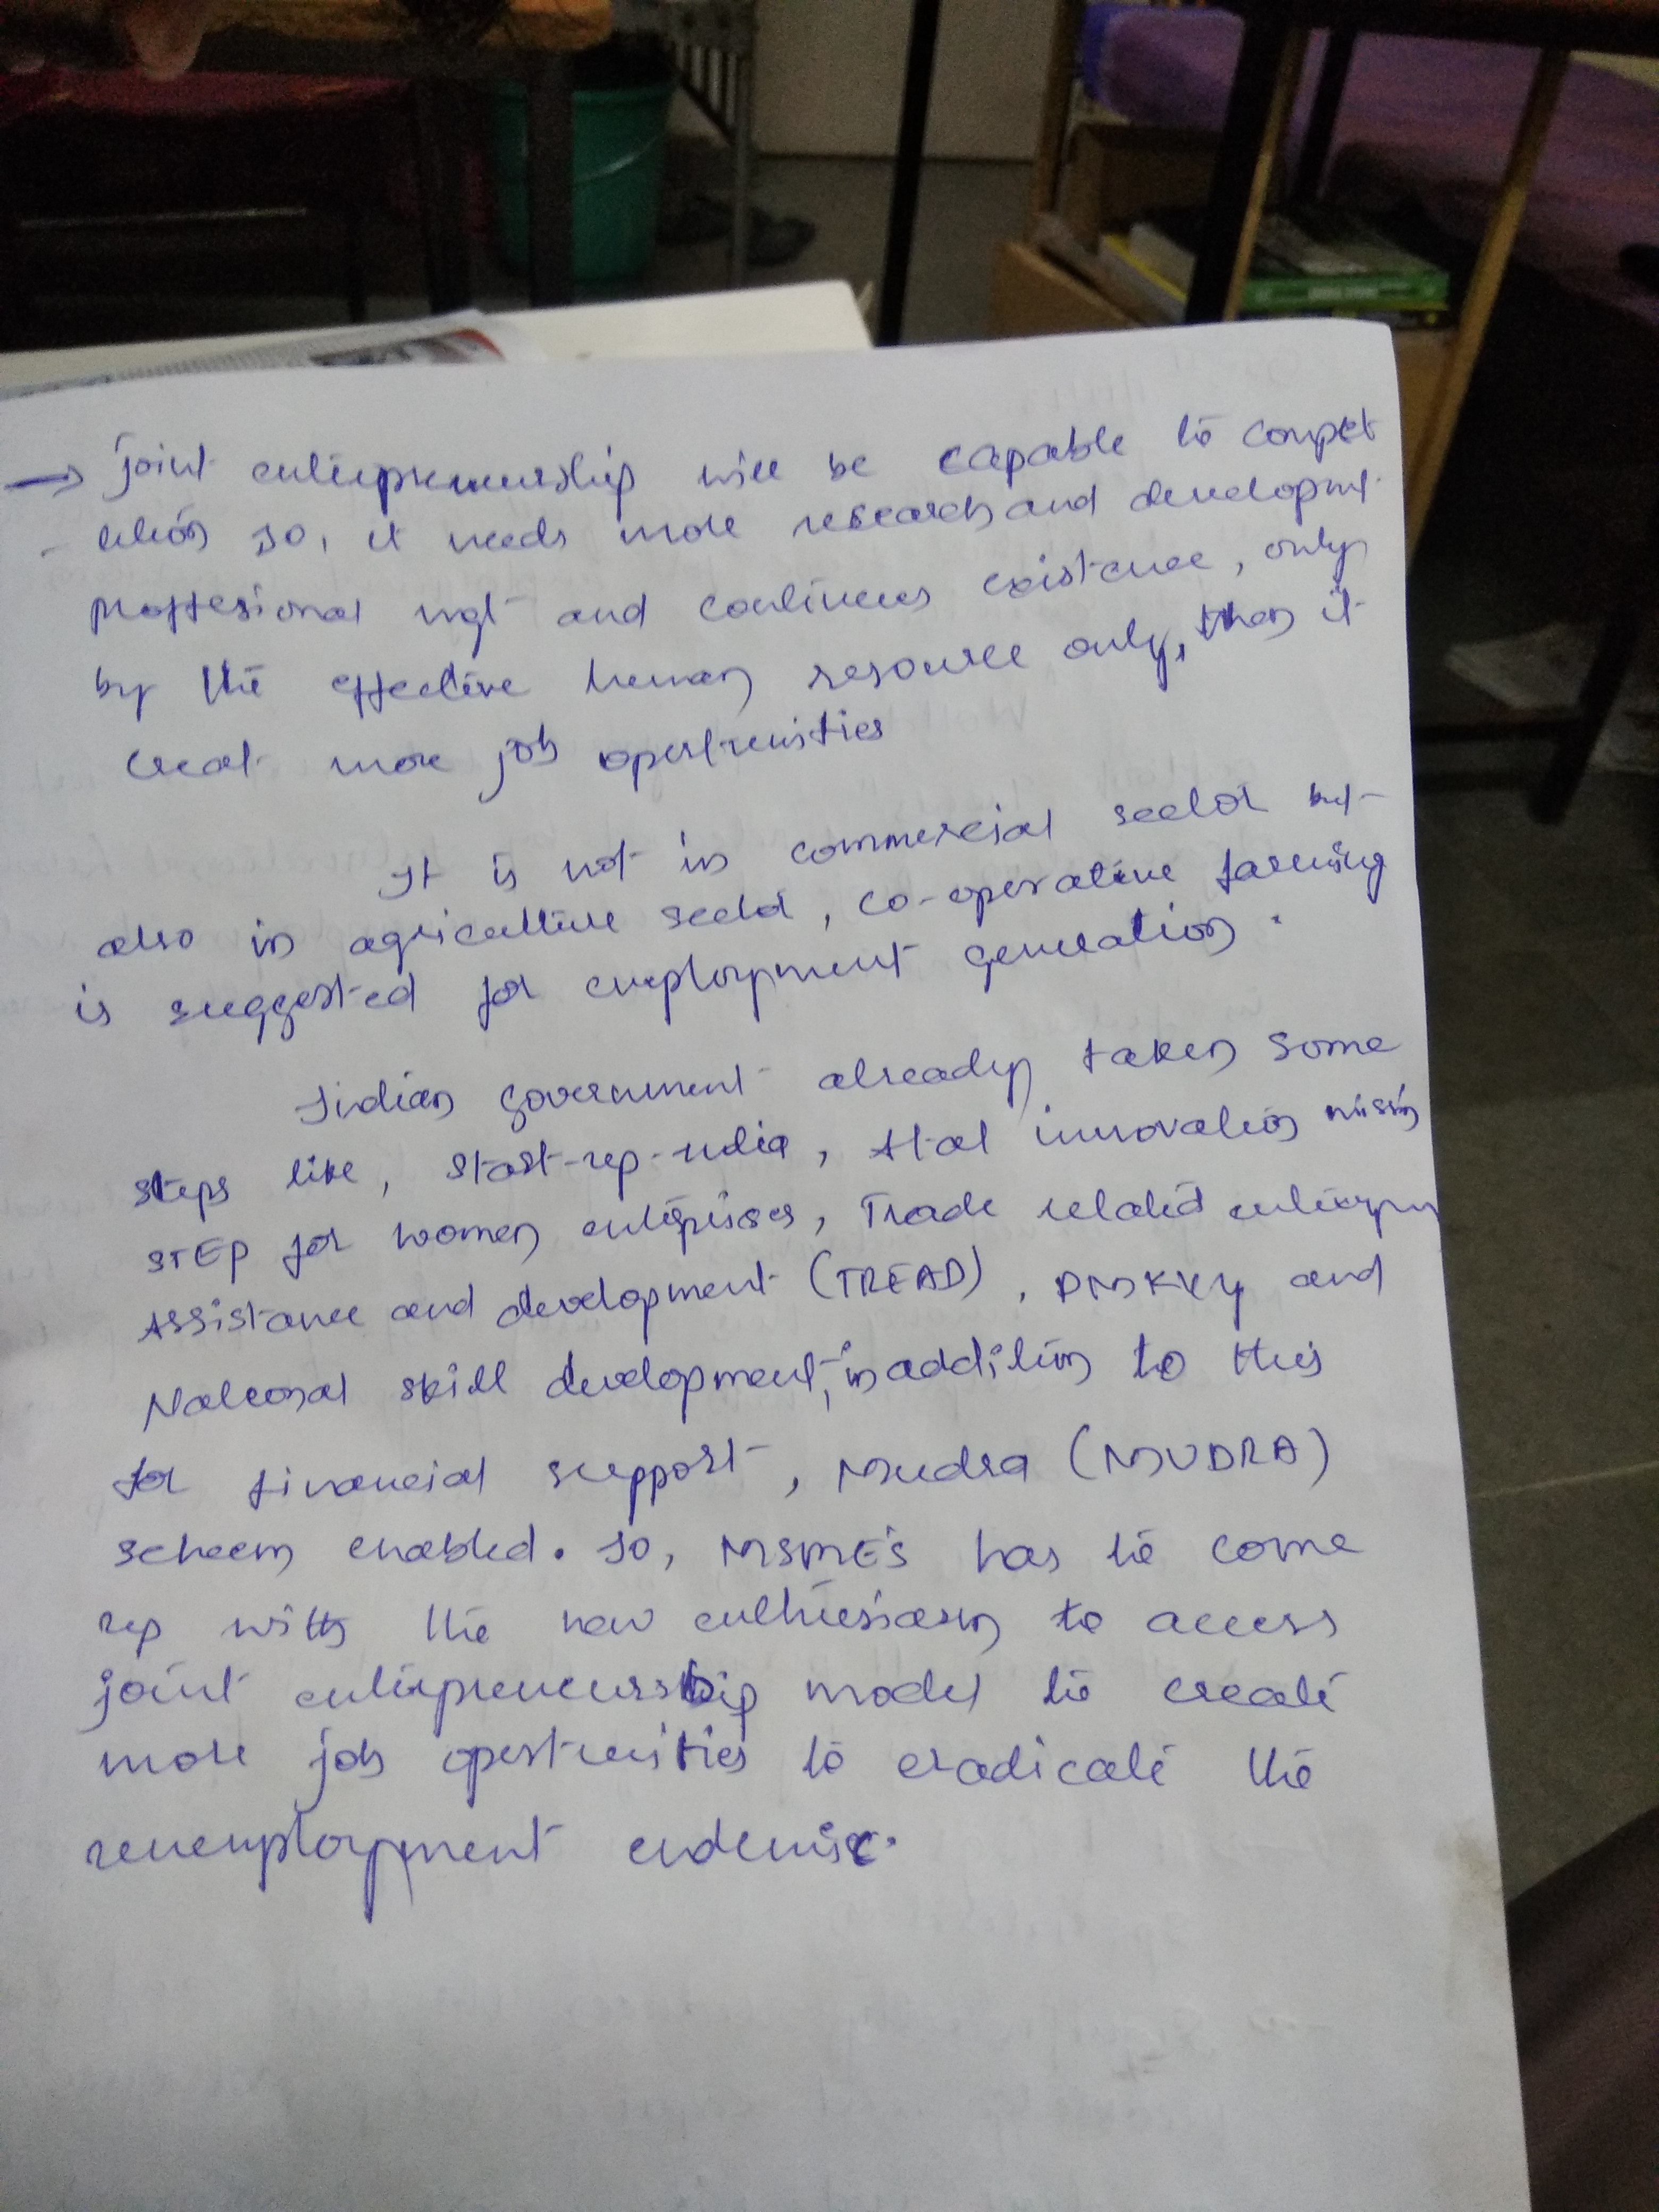 → joint enterpreneurship will be capable to compet
etion so, it needs more research and developmt.
proffesional mgt and continues existence, only
by the effective human resource only, then it
creat more job opertunities
It is not in commercial sector but
also in agriculture sector, co-operative farming
is suggested for employment generation.
Indian government already taken some
steps like, Start-up-india, Atal innovation missin
STEP for women enterprises, Trade related enterpn
Assistance and development (TREAD), PMKVY and
National skill development, in addition to this
for financial support, Mudra (MUDRA)
scheem enabled. so, MSME's has to come
up with the new enthusiasm to access
joint enterpreneurship model to create
more job opertunities to eradicate the
unemployment endemic.